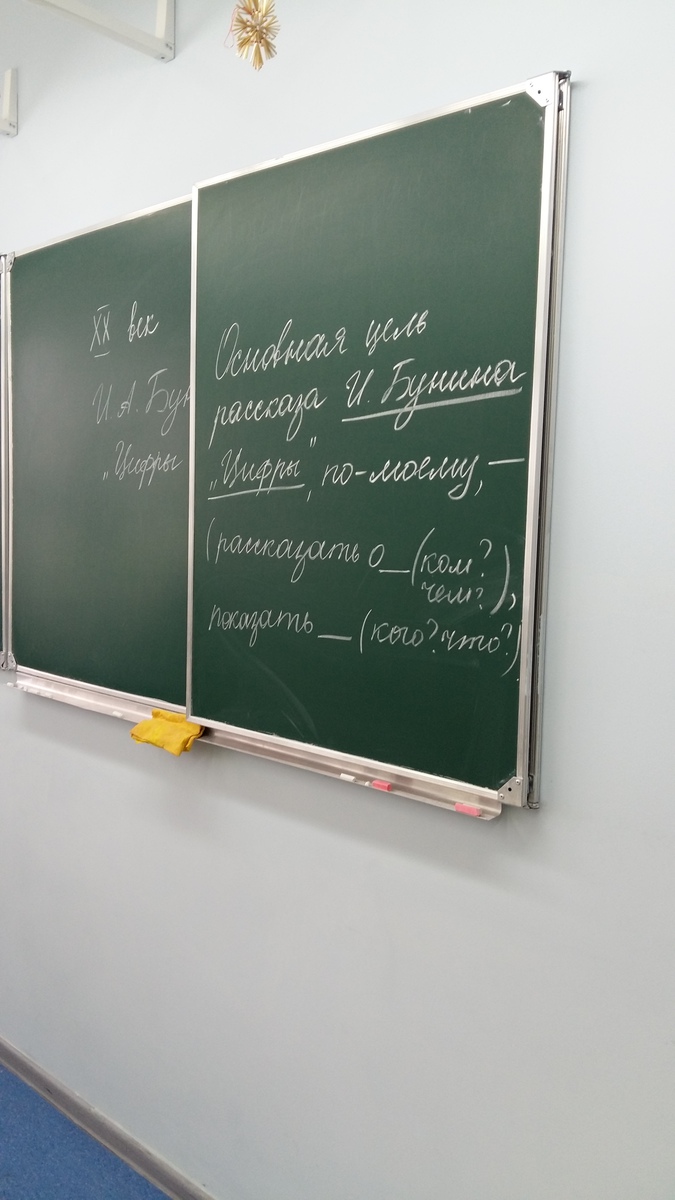 XX век
И. А. Бун
„Цифры
Основная цель
рассказа И. Бунина
„Цифры", по-моему, —
(рассказать о _ (ком?
чем?),
показать _ (кого? что?)